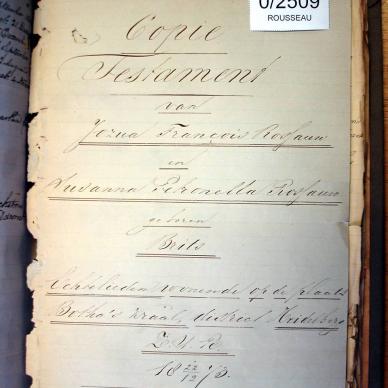 0/2509
ROUSSEAU
Copie
Testament
van
Jozua François Rossauw
en
Susanna Petronella Rossauw
geboren
Brits
Echtelieden wonende op de plaats
Botha's Kraal, district Heidelberg
Z.A.R.
18 22/12 73